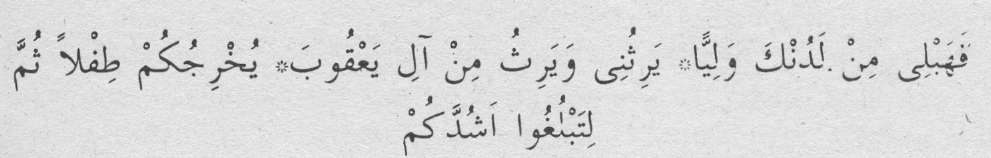 فَهَبْلِى مِنْ لَدُنْكَ وَلِيًّا * يَرِثُنِى وَيَرِثُ مِنْ آلِ يَعْقُوبَ * يُخْرِجُكُمْ طِفْلاً ثُمَّ
لِتَبْلُغُوا اَشُدَّكُمْ